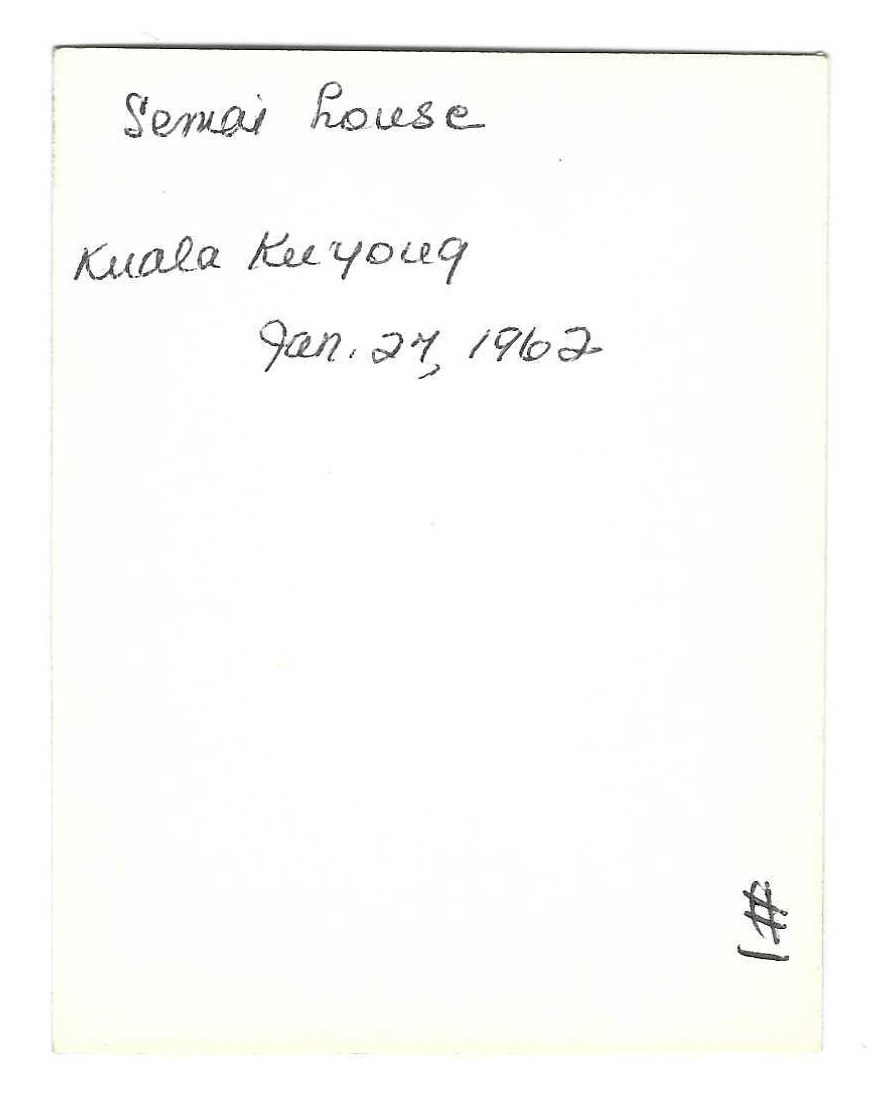 Semai house
Kuala
Jan. 27, 1962
#1